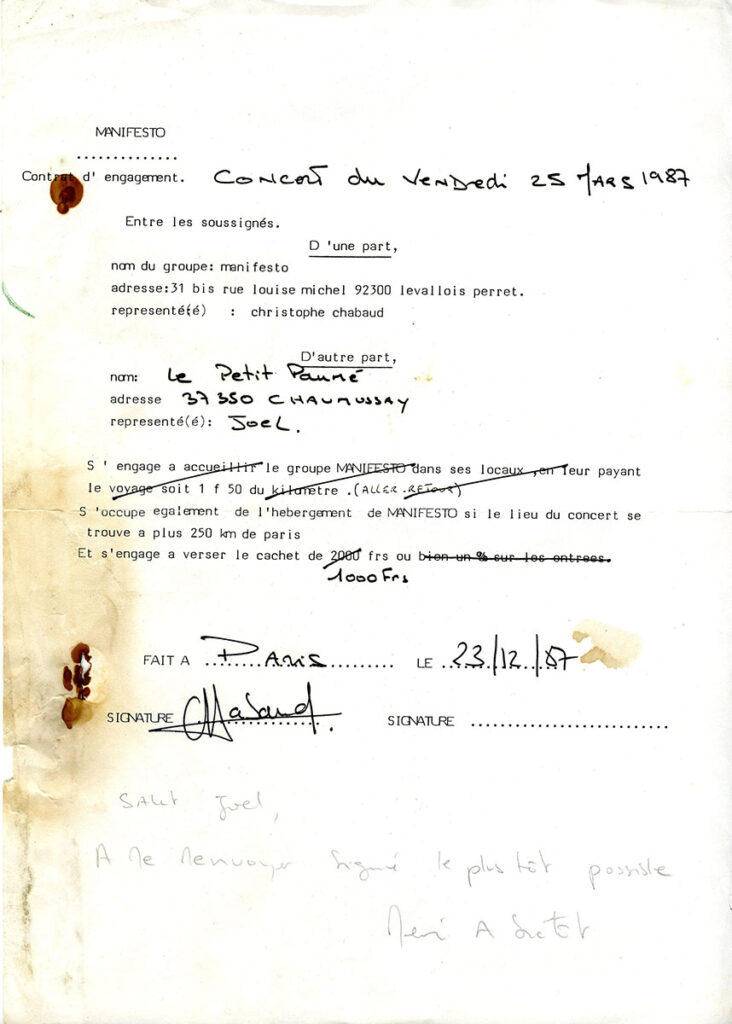 MANIFESTO
..............
Contrat d' engagement. Concert du Vendredi 25 Mars 1987
Entre les soussignés.
D 'une part,
nom du groupe: manifesto
adresse:31 bis rue louise michel 92300 levallois perret.
representé(é) : christophe chabaud
D'autre part,
nom: Le Petit Paumé
adresse 37350 CHAUMUSSAY
representé(é): JoeL.
S ' engage a accueillir le groupe MANIFESTO dans ses locaux ,en leur payant
le voyage soit 1 f 50 du kilometre .(ALLER.RETOUR)
S 'occupe egalement de l'hebergement de MANIFESTO si le lieu du concert se
trouve a plus 250 km de paris
Et s'engage a verser le cachet de 2000 frs ou bien un % sur les entrees.
1000 Frs
FAIT A PARIS LE 23/12/87
SIGNATURE Chabaud. SIGNATURE ..........................
SALUT Joel,
A me renvoyer signé le plus tôt possible
Merci A Bientôt